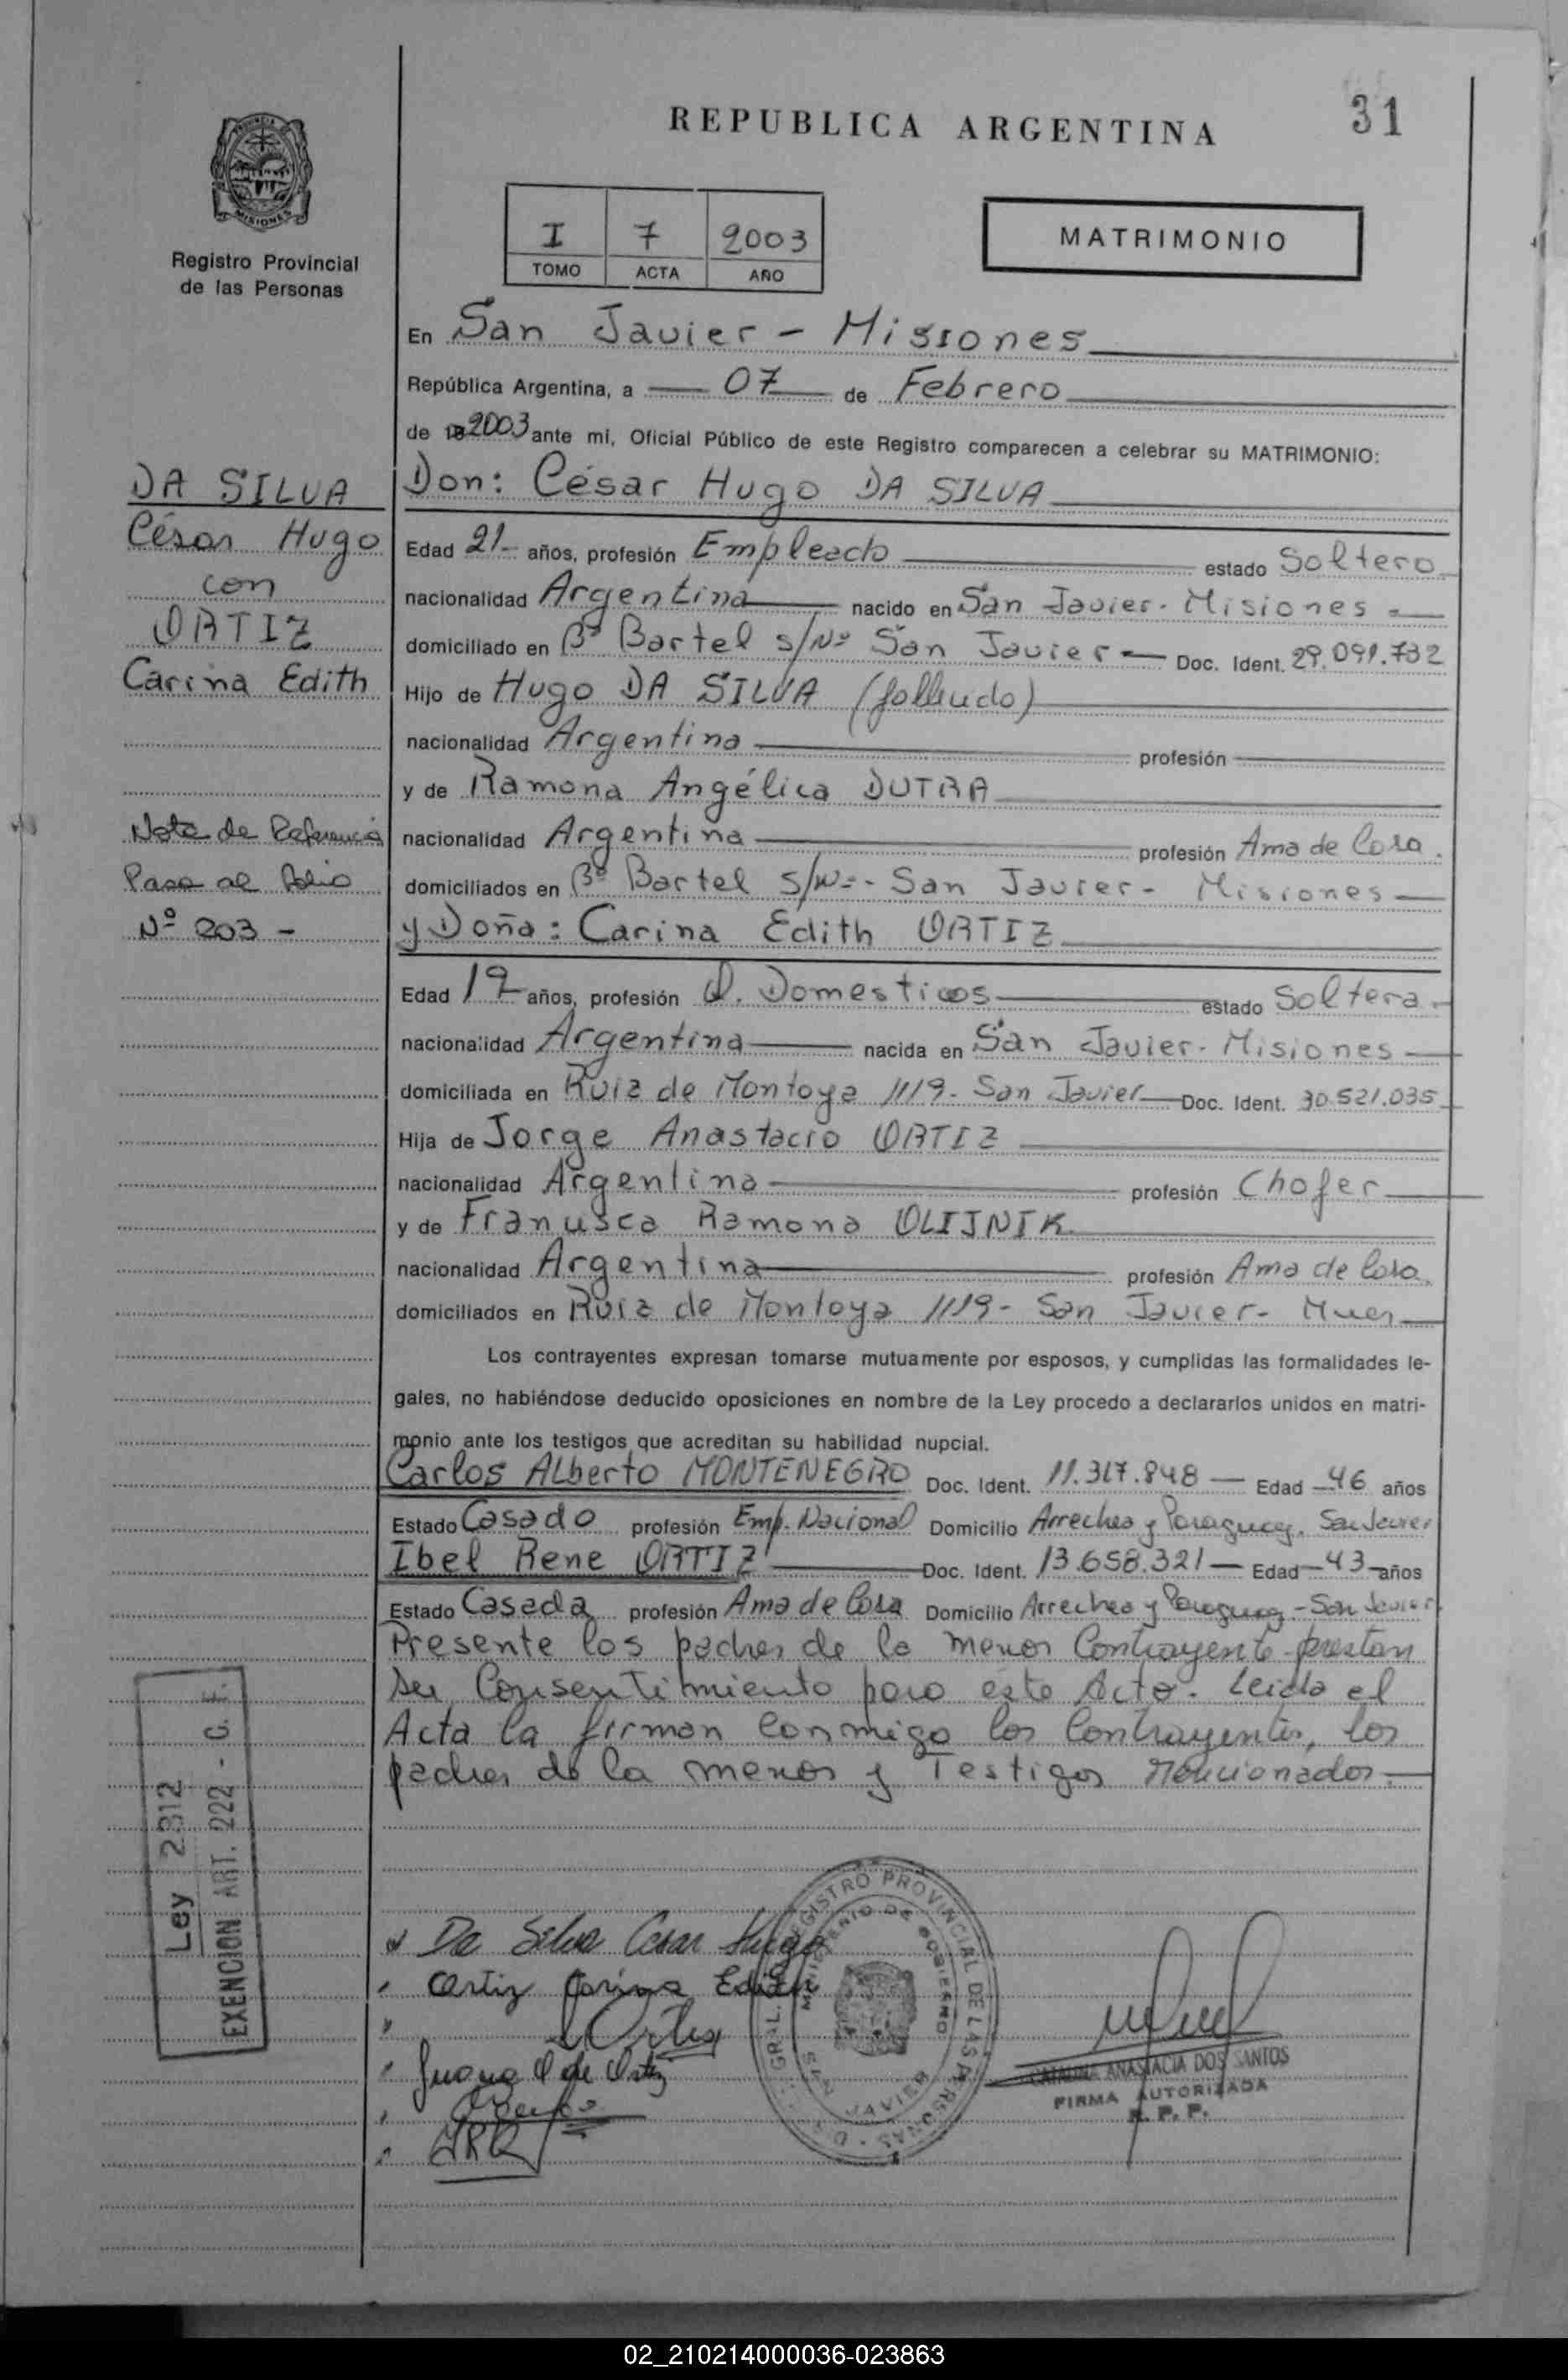 REPUBLICA ARGENTINA
31
PROVINCIA DE
MISIONES
Registro Provincial
de las Personas
I 7 2003
TOMO ACTA AÑO
MATRIMONIO
En San Javier - Misiones
República Argentina, a 07 de Febrero
de 19 2003 ante mi, Oficial Público de este Registro comparecen a celebrar su MATRIMONIO:
DA SILVA
César Hugo
con
ORTIZ
Carina Edith
Nota de Referencia
Pasa al Folio
Nº 203 -
Don: César Hugo DA SILVA
Edad 21- años, profesión Empleado estado Soltero
nacionalidad Argentina nacido en San Javier - Misiones -
domiciliado en Bº Bartel s/Nº San Javier - Doc. Ident. 29.091.732
Hijo de Hugo DA SILVA (fallecido)
nacionalidad Argentina profesión
y de Ramona Angélica DUTRA
nacionalidad Argentina profesión Ama de Casa.
domiciliados en Bº Bartel s/Nº - San Javier - Misiones
y Doña: Carina Edith ORTIZ
Edad años, profesión Q. Domesticos estado Soltera
nacionalidad Argentina nacida en San Javier - Misiones
domiciliada en Ruiz de Montoya 1119 - San Javier Doc. Ident. 30.521.035
Hija de Jorge Anastacio ORTIZ
nacionalidad Argentina profesión Chofer
y de Ramona OLIJNIK
nacionalidad Argentina profesión Ama de Casa.
domiciliados en Ruiz de Montoya 1119 - San Javier -
Los contrayentes expresan tomarse mutuamente por esposos, y cumplidas las formalidades le-
gales, no habiéndose deducido oposiciones en nombre de la Ley procedo a declararlos unidos en matri-
monio ante los testigos que acreditan su habilidad nupcial.
Carlos Alberto MONTENEGRO Doc. Ident. 11.317.848 - Edad 46 años
Estado Casado profesión Emp. Nacional Domicilio Arrechea y Paraguay. San Javier
Ibel Rene ORTIZ Doc. Ident. 13.658.321 - Edad 43 años
Estado Casada profesión Ama de Casa Domicilio Arrechea y Paraguay - San Javier
Presente los padres de la menor Contrayente prestan
su Consentimiento para este Acto. Leida el
Acta la firman conmigo los Contrayentes, los
padres de la menor y Testigos Mencionados.-
Ley 2812
EXENCION ART. 222 - C. F.
Da Silva Cesar Hugo
Ortiz Carina Edith
Ortiz
de Ortiz
REGISTRO PROVINCIAL DE LAS PERSONAS
MINISTERIO DE GOBIERNO
SAN JAVIER
CATALINA ANASTACIA DOS SANTOS
FIRMA AUTORIZADA
R. P. P.
02_210214000036-023863